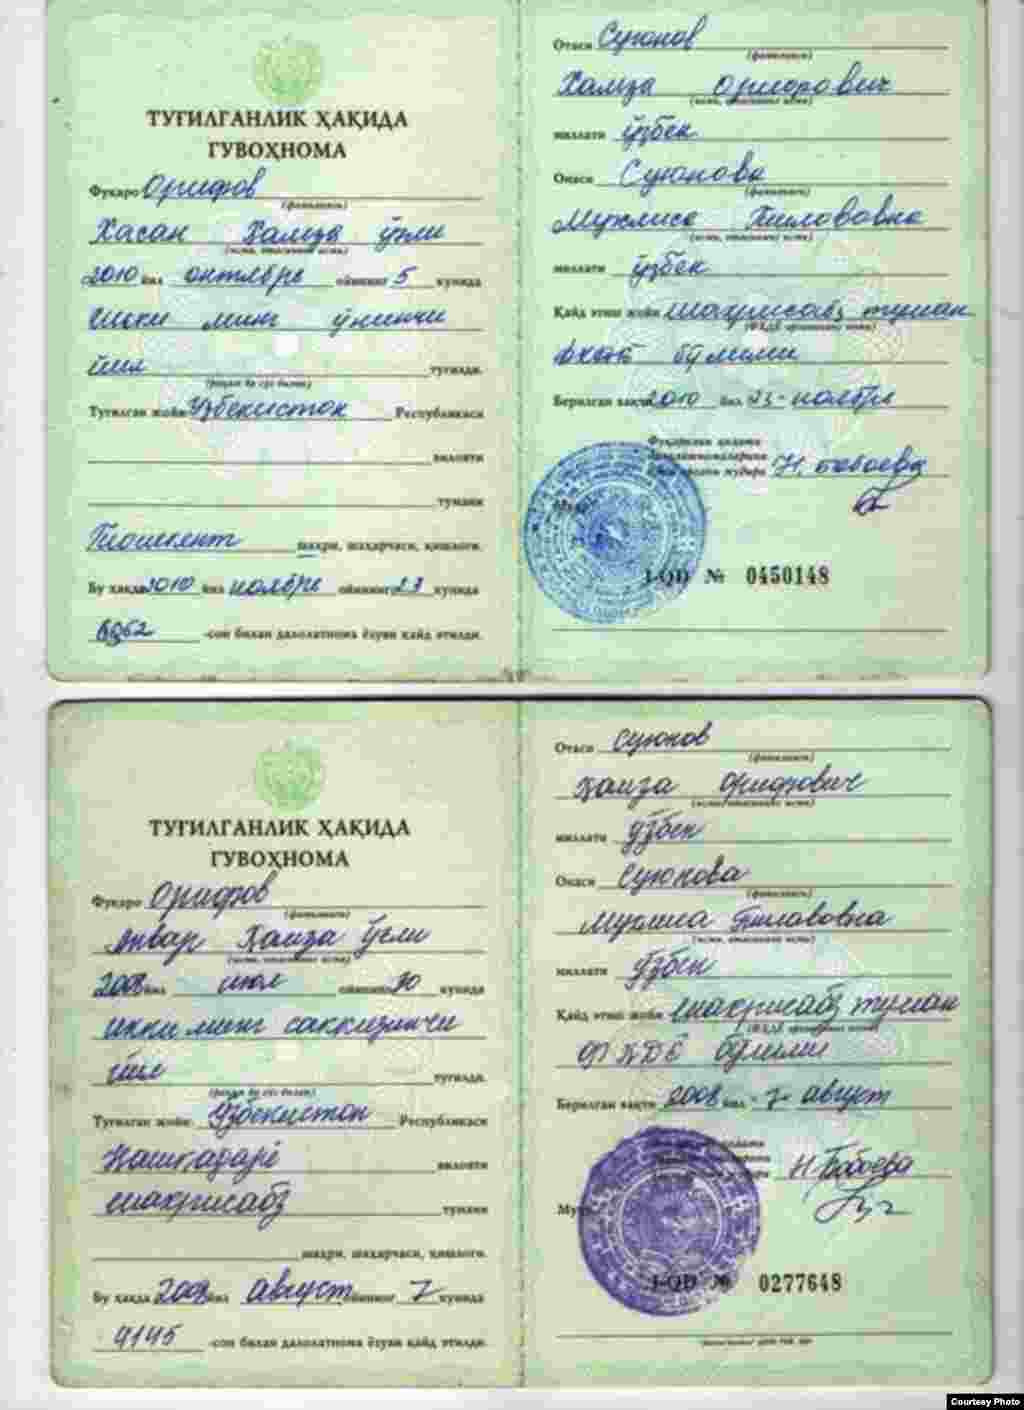 ТУҒИЛГАНЛИК ҲАҚИДА
ГУВОҲНОМА
Фуқаро Орифов
(фамилияси)
Хасан Хамза ўғли
(исми, отасининг исми)
2010 йил октябрь ойининг 5 кунида
Икки минг ўнинчи
йил туғилди.
Туғилган жойи Ўзбекистон Республикаси
вилояти
тумани
Тошкент шаҳри, шаҳарчаси, қишлоғи.
Бу ҳақда 2010 йил ноябрь ойининг 23 кунида
-сон билан далолатнома ёзуви қайд этилди.
Отаси Суюнов
(фамилияси)
Хамза Орифович
(исми, отасининг исми)
миллати ўзбек
Онаси Суюнова
(фамилияси)
Мухлиса Пиловована
(исми, отасининг исми)
миллати ўзбек
Қайд этиш жойи Шахрисабз туман
бўлими
Берилган вақти 2010 йил 23 ноябрь
Фуқаролик ҳолати
далолатномаларини
Н. Бобоева
I-QD № 0450148
ТУҒИЛГАНЛИК ҲАҚИДА
ГУВОҲНОМА
Фуқаро Орифов
(фамилияси)
Анвар Ҳамза ўғли
(исми, отасининг исми)
2008 йил июл ойининг 30 кунида
икки минг саккизинчи
йил туғилди.
Туғилган жойи Ўзбекистон Республикаси
Қашқадарё вилояти
Шахрисабз тумани
шаҳри, шаҳарчаси, қишлоғи.
Бу ҳақда 2008 йил август ойининг 7 кунида
4145 -сон билан далолатнома ёзуви қайд этилди.
Отаси Суюнов
(фамилияси)
Ҳамза Орифович
(исми, отасининг исми)
миллати ўзбек
Онаси Суюнова
(фамилияси)
Мухлиса Пилавовна
(исми, отасининг исми)
миллати ўзбек
Қайд этиш жойи Шахрисабз туман
ФҲДЁ бўлими
Берилган вақти 2008 йил 7 август
Н. Бобоева
I-QD № 0277648
Courtesy Photo